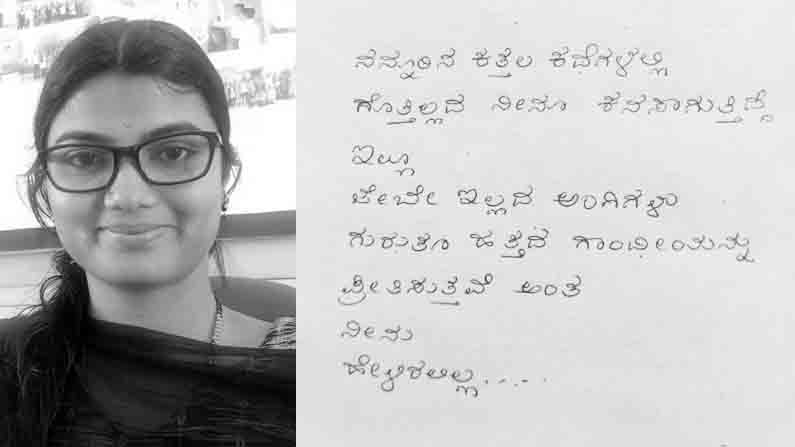 ನನ್ನೂರಿನ ಕತ್ತಲ ಕಥೆಗಳಲ್ಲಿ
ಗೊತ್ತಿಲ್ಲದ ನೀನೂ ಕನಸಾಗುತ್ತಿದ್ದೆ
ಇಲ್ಲೂ
ಜೇಬೇ ಇಲ್ಲದ ಅಂಗಿಗಳೂ
ಗುರುತೂ ಹತ್ತದ ಗಾಂಧೀಯನ್ನು
ಪ್ರೀತಿಸುತ್ತವೆ ಅಂತ
ನೀನು
ಹೇಳಿರಲಿಲ್ಲ.....